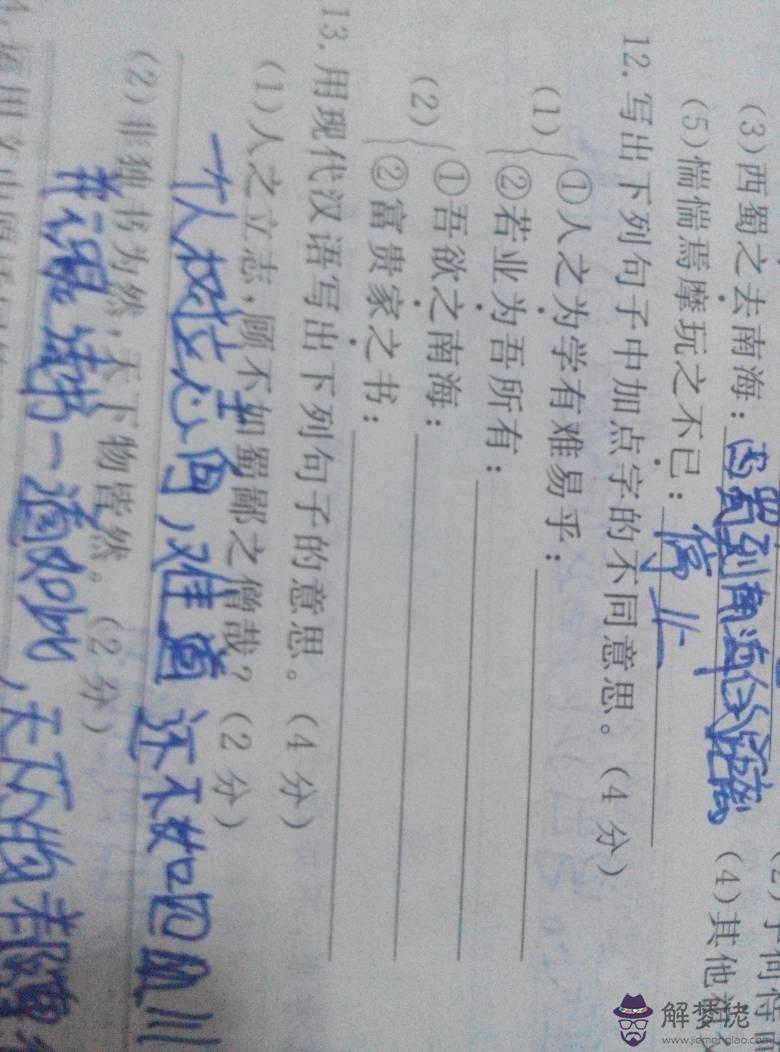 (2)子何恃而
(3)西蜀之去南海：西蜀到南海的距离
(4)其他
(5)惴惴焉摩玩之不已：停止
12.写出下列句子中加点字的不同意思。(4分)
(1)①人之为学有难易乎：
②若业为吾所有：
(2)①吾欲之南海：
②富贵家之书：
13.用现代汉语写出下列句子的意思。(4分)
(1)人之立志，顾不如蜀鄙之僧哉？(2分)
一个人树立志向，难道还不如四川
(2)非独书为然，天下物皆然。(2分)
并不是读书一道如此，天下万物都
解梦佬
www.jiemenglao.com